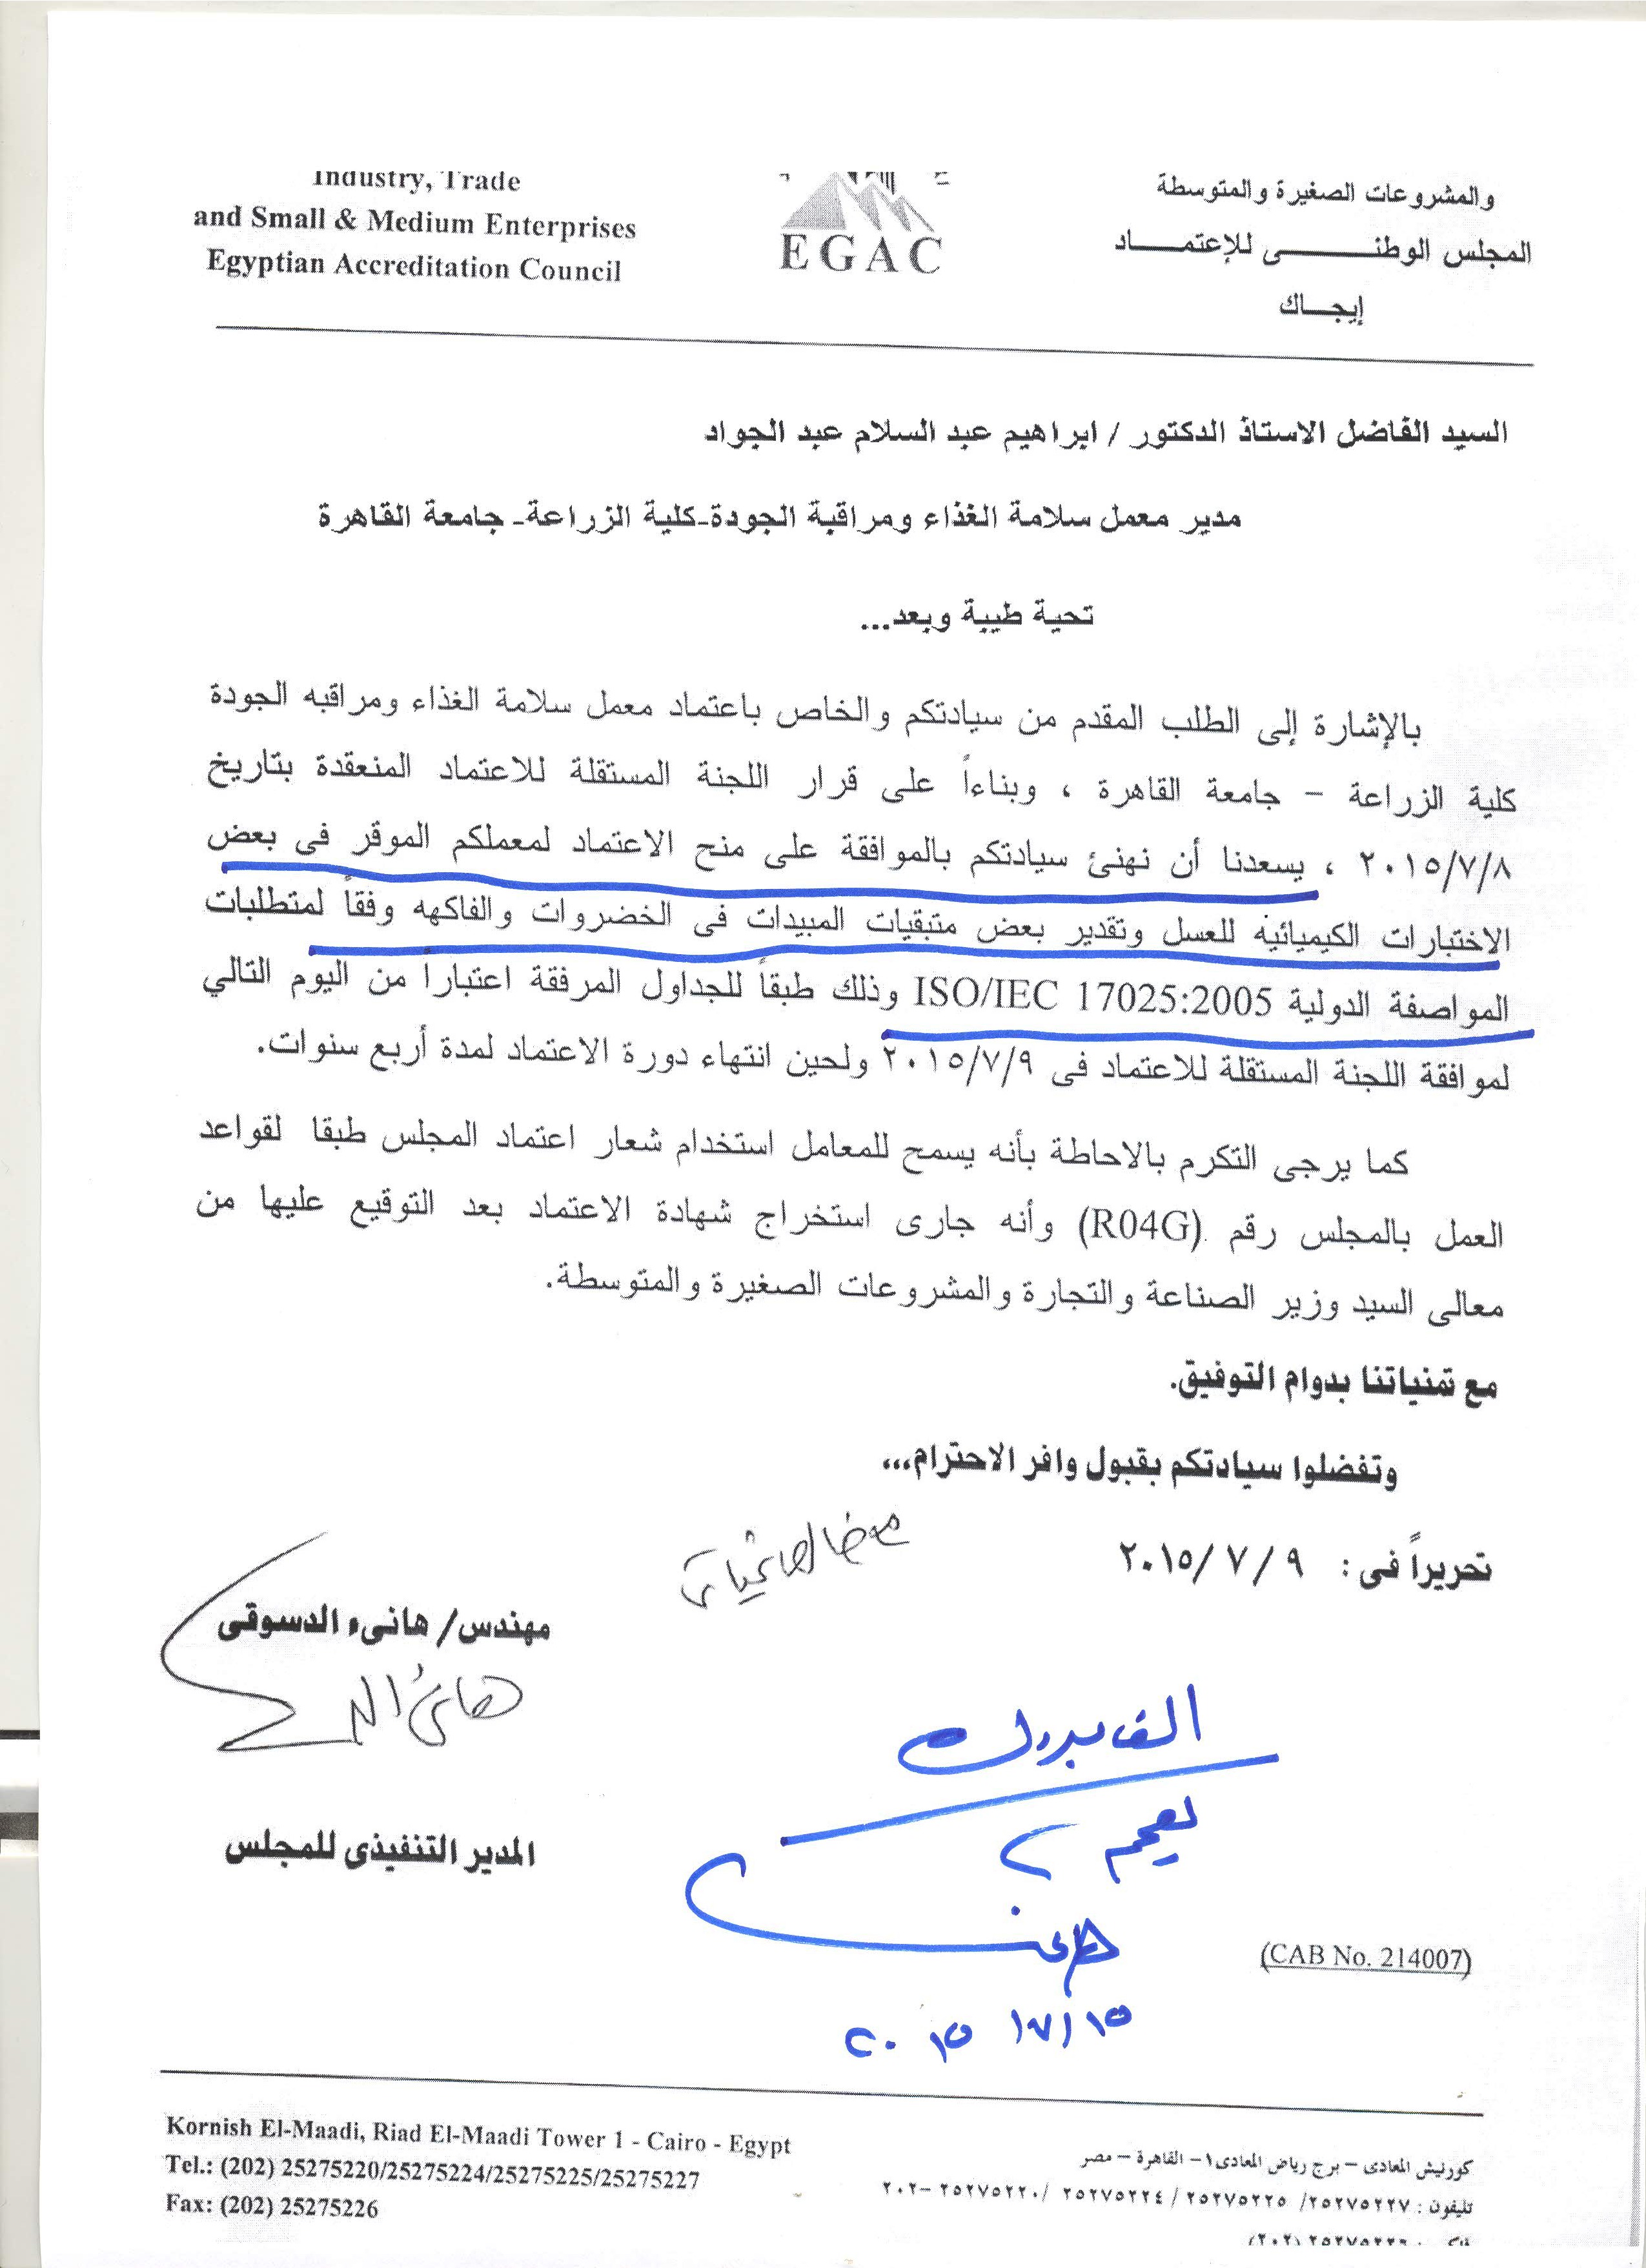 Industry, Trade
and Small & Medium Enterprises
Egyptian Accreditation Council
EGAC
والمشروعات الصغيرة والمتوسطة
المجلس الوطنـــــــــى للإعتمــــــاد
إيجـــاك
السيد الفاضل الاستاذ الدكتور / ابراهيم عبد السلام عبد الجواد
مدير معمل سلامة الغذاء ومراقبة الجودة-كلية الزراعة- جامعة القاهرة
تحية طيبة وبعد...
بالإشارة إلى الطلب المقدم من سيادتكم والخاص باعتماد معمل سلامة الغذاء ومراقبه الجودة
كلية الزراعة – جامعة القاهرة ، وبناءاً على قرار اللجنة المستقلة للاعتماد المنعقدة بتاريخ
٢٠١٥/٧/٨ ، يسعدنا أن نهنئ سيادتكم بالموافقة على منح الاعتماد لمعملكم الموقر فى بعض
الاختبارات الكيميائيه للعسل وتقدير بعض متبقيات المبيدات فى الخضروات والفاكهه وفقاً لمتطلبات
المواصفة الدولية ISO/IEC 17025:2005 وذلك طبقاً للجداول المرفقة اعتباراً من اليوم التالي
لموافقة اللجنة المستقلة للاعتماد فى ٢٠١٥/٧/٩ ولحين انتهاء دورة الاعتماد لمدة أربع سنوات.
كما يرجى التكرم بالاحاطة بأنه يسمح للمعامل استخدام شعار اعتماد المجلس طبقا لقواعد
العمل بالمجلس رقم (R04G) وأنه جارى استخراج شهادة الاعتماد بعد التوقيع عليها من
معالى السيد وزير الصناعة والتجارة والمشروعات الصغيرة والمتوسطة.
مع تمنياتنا بدوام التوفيق.
وتفضلوا سيادتكم بقبول وافر الاحترام...
تحريراً فى : ٢٠١٥/ ٧ / ٩
مهندس/ هانىء الدسوقى
الف مبروك
المدير التنفيذى للمجلس
٢٠١٥ /٧/١٥
(CAB No. 214007)
Kornish El-Maadi, Riad El-Maadi Tower 1 - Cairo - Egypt
Tel.: (202) 25275220/25275224/25275225/25275227
Fax: (202) 25275226
كورنيش المعادى – برج رياض المعادى١ – القاهرة – مصر
تليفون : ٢٥٢٧٥٢٢٧/ ٢٥٢٧٥٢٢٥ / ٢٥٢٧٥٢٢٤ /٢٥٢٧٥٢٢٠ –٢٠٢